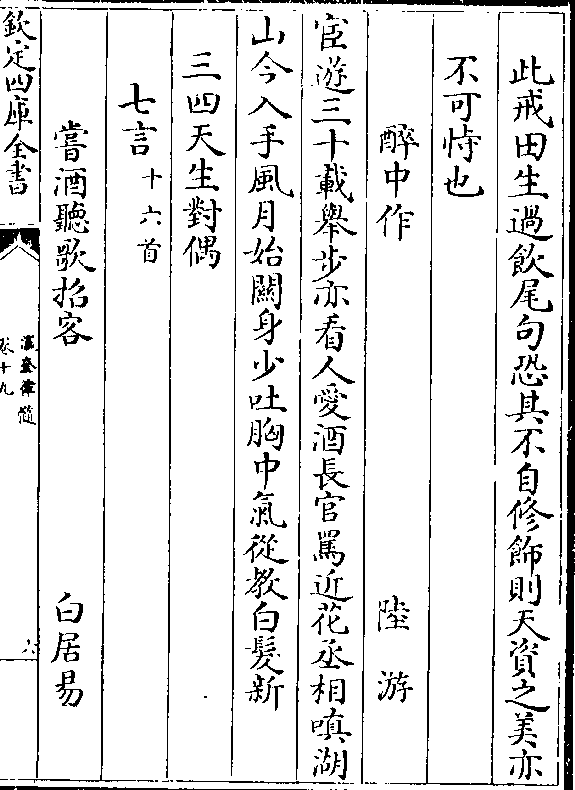 此戒田生過飲尾句恐其不自修飾則天資之美亦
不可恃也
醉中作 陸游
宦遊三十載舉步亦看人愛酒長官罵近花丞相嗔湖
山今入手風月始關身少吐胸中氣從教白髮新
三四天生對偶
七言十六首
嘗酒聽歌招客 白居易
欽定四庫全書
瀛奎律髓
卷十九
六